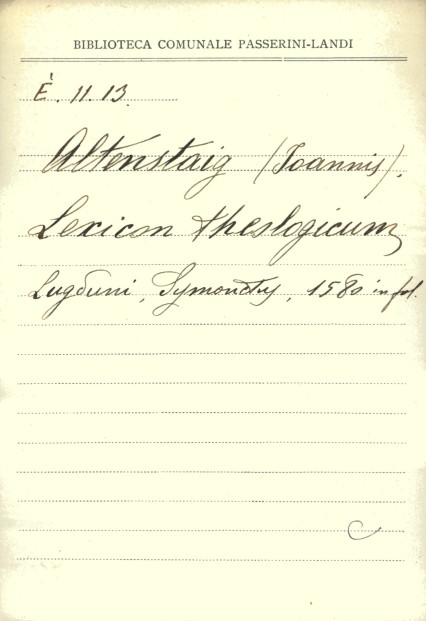 BIBLIOTECA COMUNALE PASSERINI-LANDI
È. 11.13.
Altenstaig (Ioannis).
Lexicon theologicum
Lugduni, Symonetus, 1580 in fol.